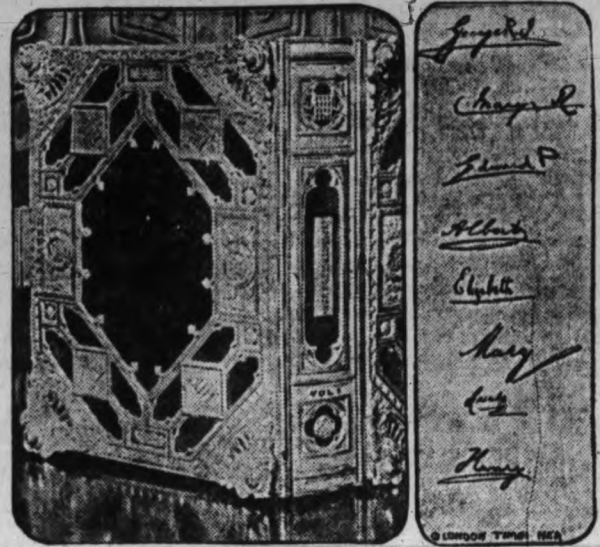 VOL I
George R.I.
Mary R
Edward P
Albert
Elizabeth
Mary
Henry
© LONDON TIMES NEA